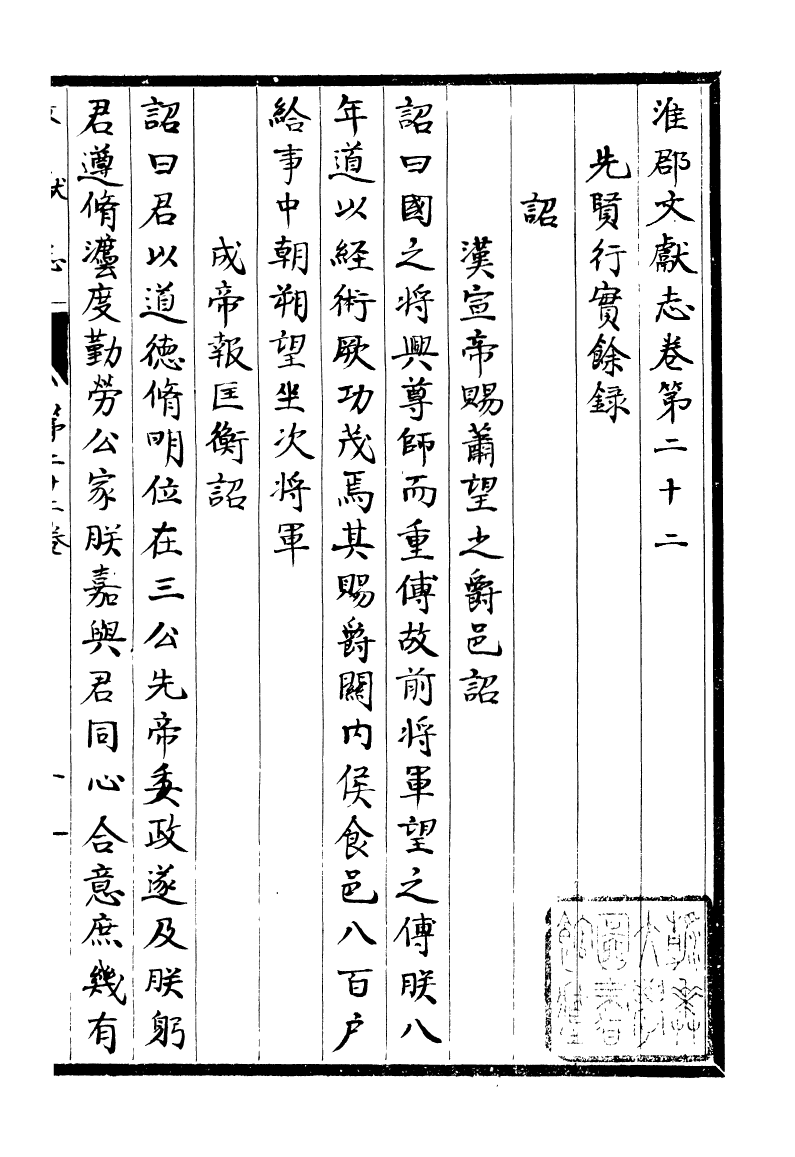 淮郡文獻志卷第二十二
先賢行實餘録
詔
漢宣帝賜蕭望之爵邑詔
詔曰國之將興尊師而重傅故前將軍望之傅朕八
年道以經術厥功茂焉其賜爵關内侯食邑八百户
給事中朝朔望坐次將軍
成帝報匡衡詔
詔曰君以道德脩明位在三公先帝委政遂及朕躬
君遵脩灋度勤勞公家朕嘉與君同心合意庶幾有